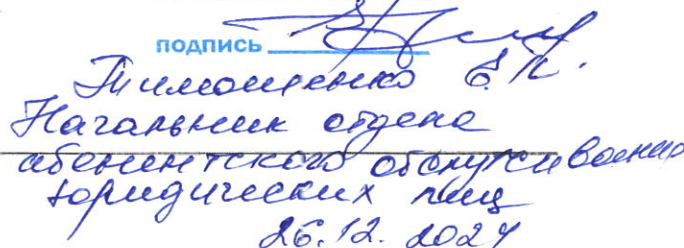 подпись
Тимошенко Е.К.
Начальник отдела
абонентского обслуживания
юридических лиц
26.12.2024